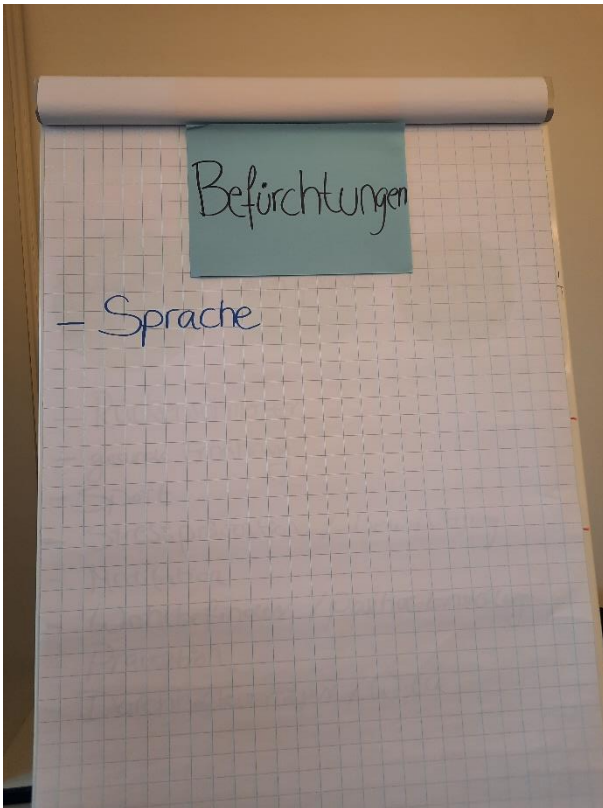 Befürchtungen
- Sprache